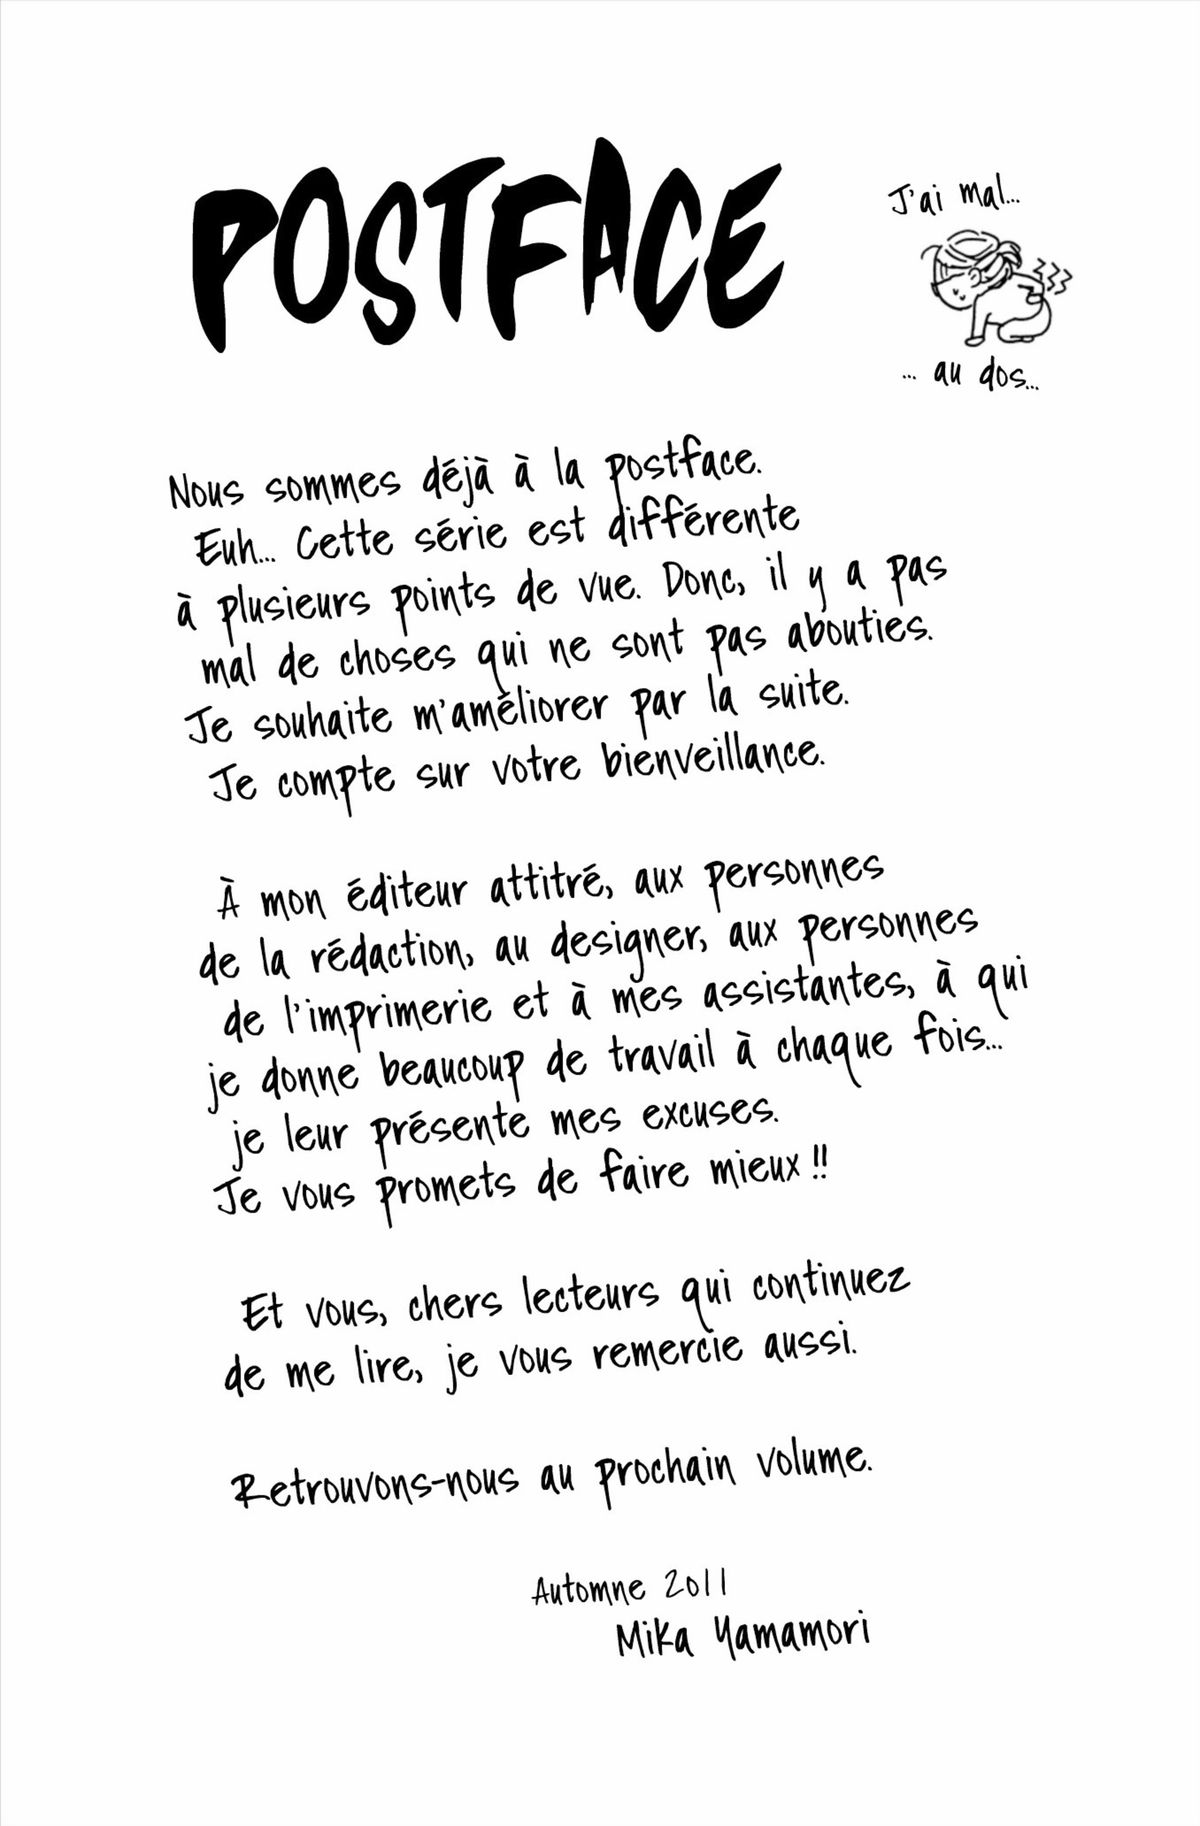 POSTFACE
J'ai mal...
... au dos...
Nous sommes déjà à la postface.
Euh... Cette série est différente
à plusieurs points de vue. Donc, il y a pas
mal de choses qui ne sont pas abouties.
Je souhaite m'améliorer par la suite.
Je compte sur votre bienveillance.
À mon éditeur attitré, aux personnes
de la rédaction, au designer, aux personnes
de l'imprimerie et à mes assistantes, à qui
je donne beaucoup de travail à chaque fois...
je leur présente mes excuses.
Je vous promets de faire mieux !!
Et vous, chers lecteurs qui continuez
de me lire, je vous remercie aussi.
Retrouvons-nous au prochain volume.
Automne 2011
Mika Yamamori